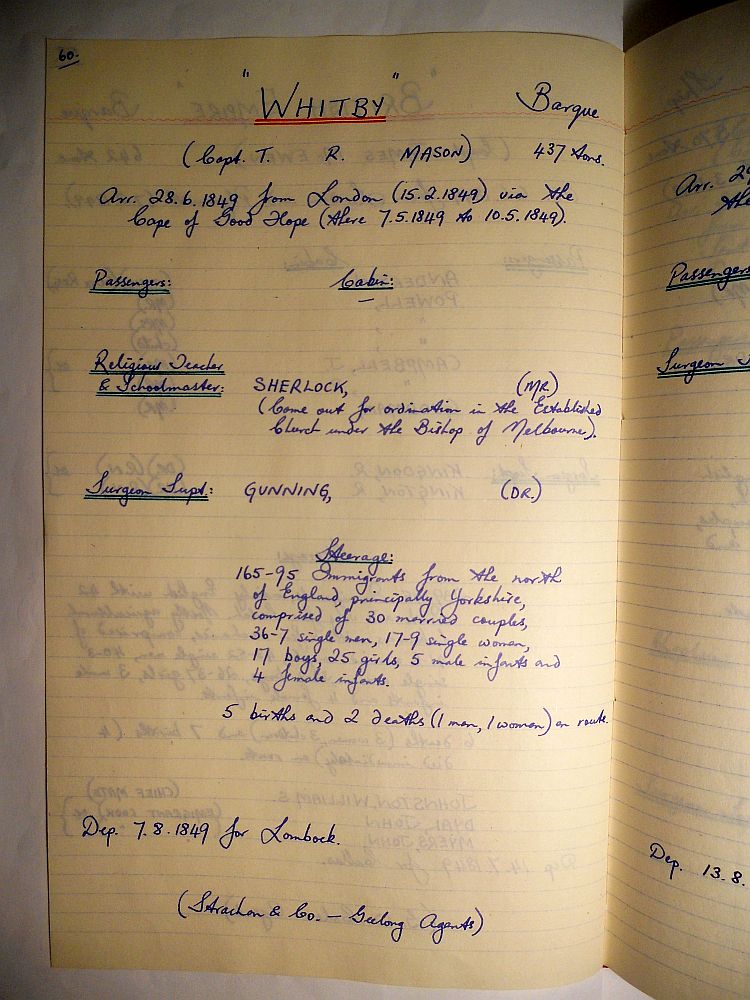 60.
"WHITBY" Barque
(Capt. T. R. MASON) 437 tons.
Arr. 28.6.1849 from London (15.2.1849) via the
Cape of Good Hope (there 7.5.1849 to 10.5.1849).
Passengers: Cabin:
Religious Teacher
& Schoolmaster: SHERLOCK, (MR)
(Come out for ordination in the Established
Church under the Bishop of Melbourne).
Surgeon Supt.: GUNNING, (DR.)
Steerage:
165-95 Immigrants from the north
of England, principally Yorkshire,
comprised of 30 married couples,
36-7 single men, 17-9 single women,
17 boys, 25 girls, 5 male infants and
4 female infants.
5 births and 2 deaths (1 man, 1 woman) en route.
Dep. 7.8.1849 for Lombock.
(Strachan & Co. — Geelong Agents)
Ship
Arr. 29
the
Passengers
Surgeon S
Dep. 13.8.